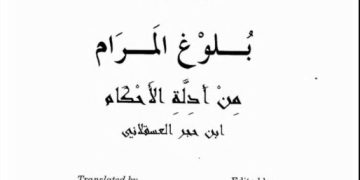 بُلُوْغ المَرَام
مِنْ أَدِلَّةِ الأَحْكَام
ابن حجر العسقلاني
Translated by